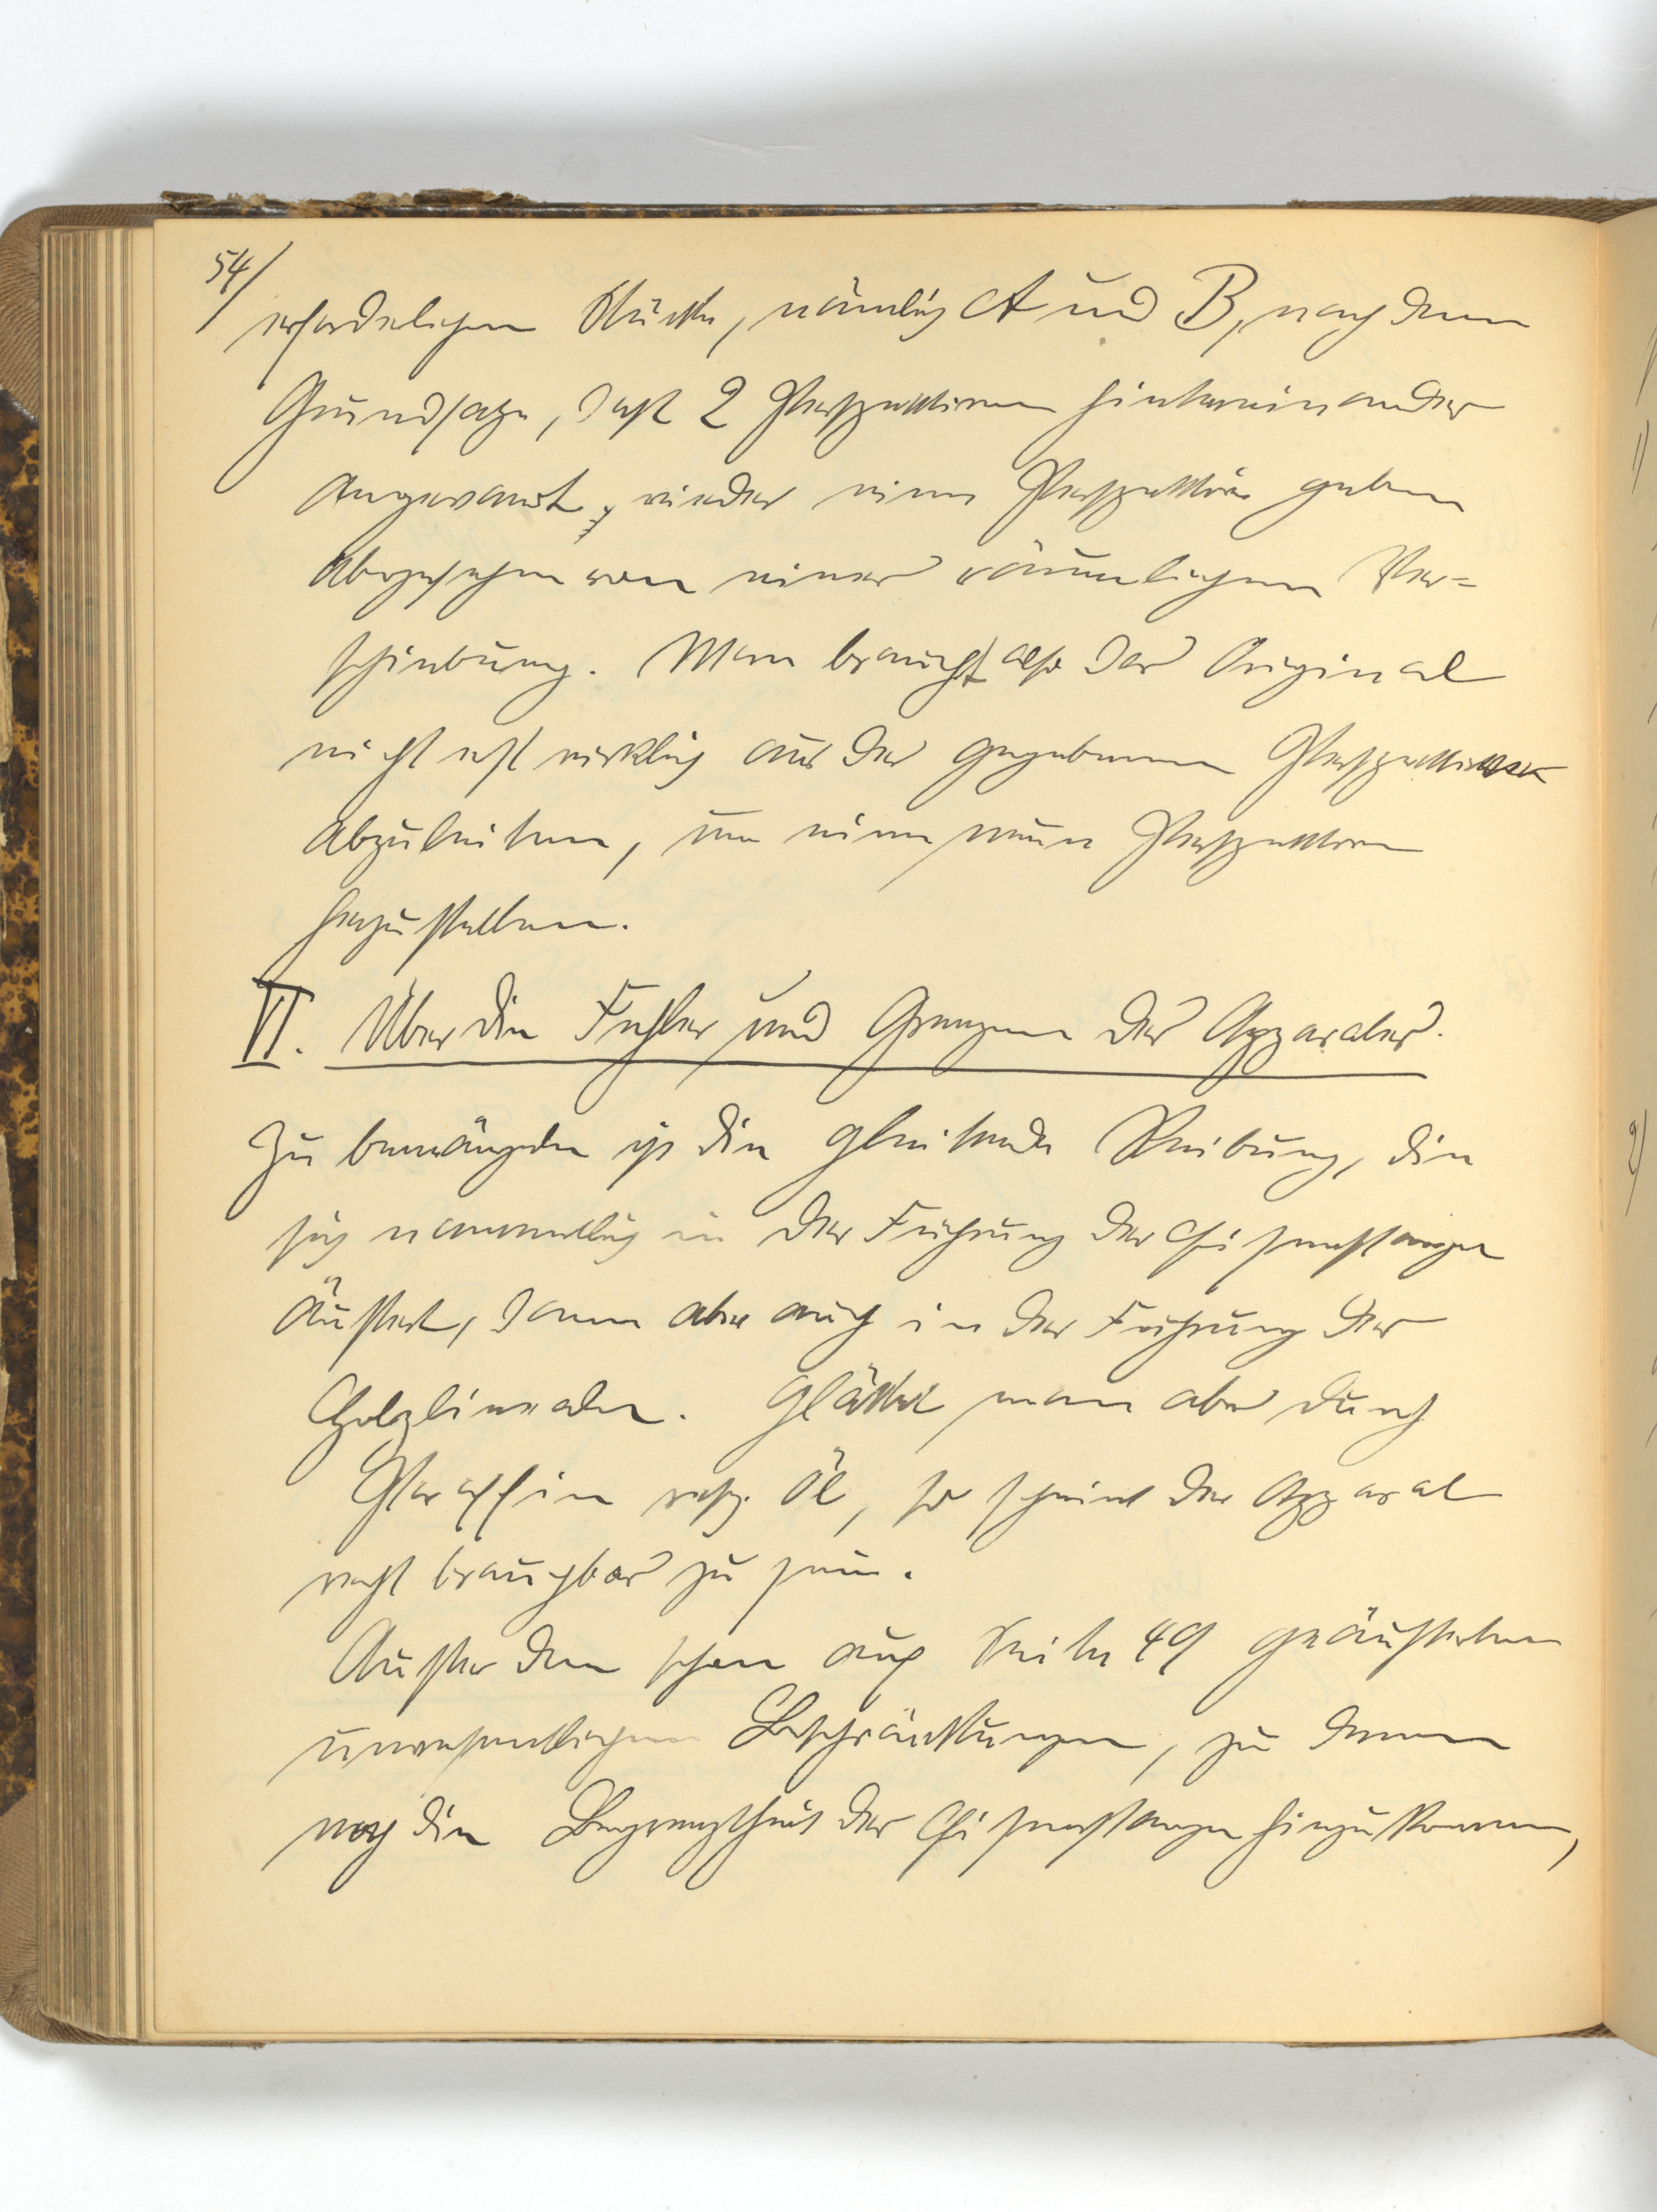 54/
erforderlichen Stücke, nämlich A und B, nach dem
Grundsatze, daß 2 Perspektiven hintereinander
angewandt, wieder eine Perspektive geben
abgesehen von einer räumlichen Ver=
schiebung. Man braucht also das Original
nicht erst wirklich aus der gegebenen Perspektive
abzuleiten, um eine neue Perspektive
herzustellen.
VI. Über die Fehler und Grenzen des Apparates.
Zu bemängeln ist die gleitende Reibung, die
sich namentlich in der Führung der Eisenstangen
äußert, dann aber auch in der Führung der
Holzlineale. Glättet man aber durch
Paraffin resp. Öl, so scheint der Apparat
recht brauchbar zu sein.
Außer den schon auf Seite 49 geäußerten
unwesentlichen Beschränkungen, zu denen
noch die Begrenztheit der Eisenstangen hinzukommen,
1)
2)